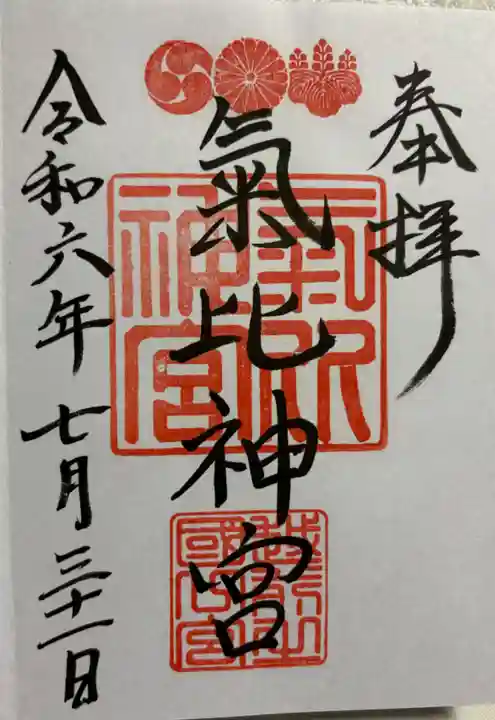 奉拝
氣比神宮
氣比神宮
令和六年七月三十一日